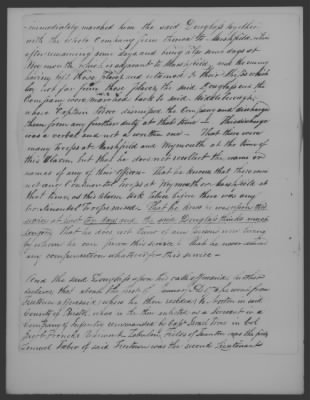 immediately marched him the said Douglass together
with the whole Company from thence to Marshfield, where
after remaining some days and being also some days at
Plymouth which is adjacent to Marshfield, and the enemy
having left those places and returned to their ships which
lay not far from these places, the said Douglass and the
Company were marched back to said Middleborough,
where Captain dismissed the Company and discharged
them from any further duty at that time - This discharge
was a verbal and not a written one - That there were
many troops at Marshfield and Weymouth at the time of
this Alarm but that he does not recollect the names or
names of any of this Officers - That he knows that there were
not any Continental troops at Weymouth or Marshfield at
that time, as this alarm took place before there was any
Continental troops raised - That he was in this
service at least ten days and the said Douglass thinks much
longer - That he does not know of any person now living
by whom he can prove this service & that he never received
any compensation whatever for this service -
And the said Douglass upon his oath aforesaid, further
declares that about the first of A.D. he went from
Freetown aforesaid, where he then resided, to Norton in said
County of Bristol, where he then enlisted as a Sergeant in a
Company of Infantry commanded by Capt. Israel Trow in Col
Josiah Francis' Regiment, Zebulon Fields of Taunton was the first
Lemuel Tabor of said Freetown was the second Lieutenants